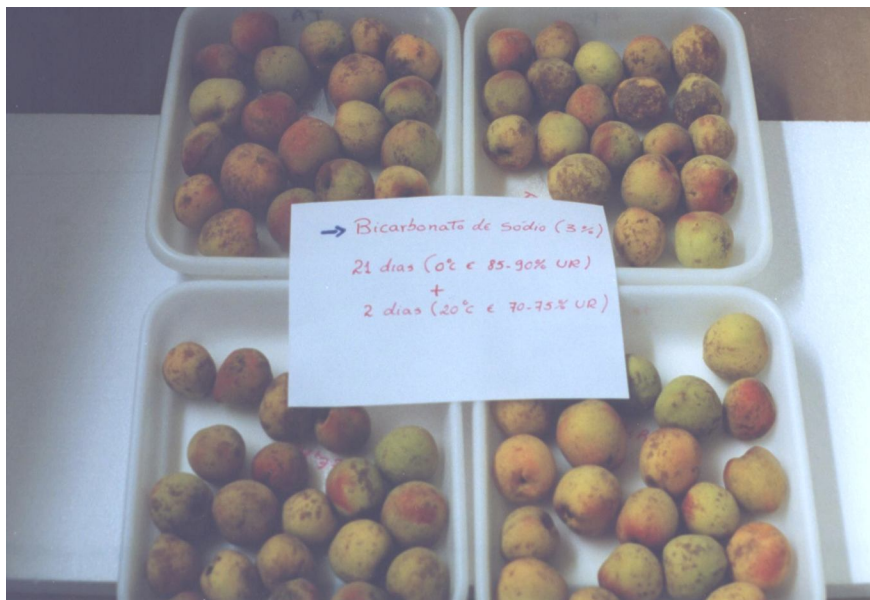 → Bicarbonato de sódio (3%)
21 dias (0°c e 85-90% UR)
+
2 dias (20°c e 70-75% UR)